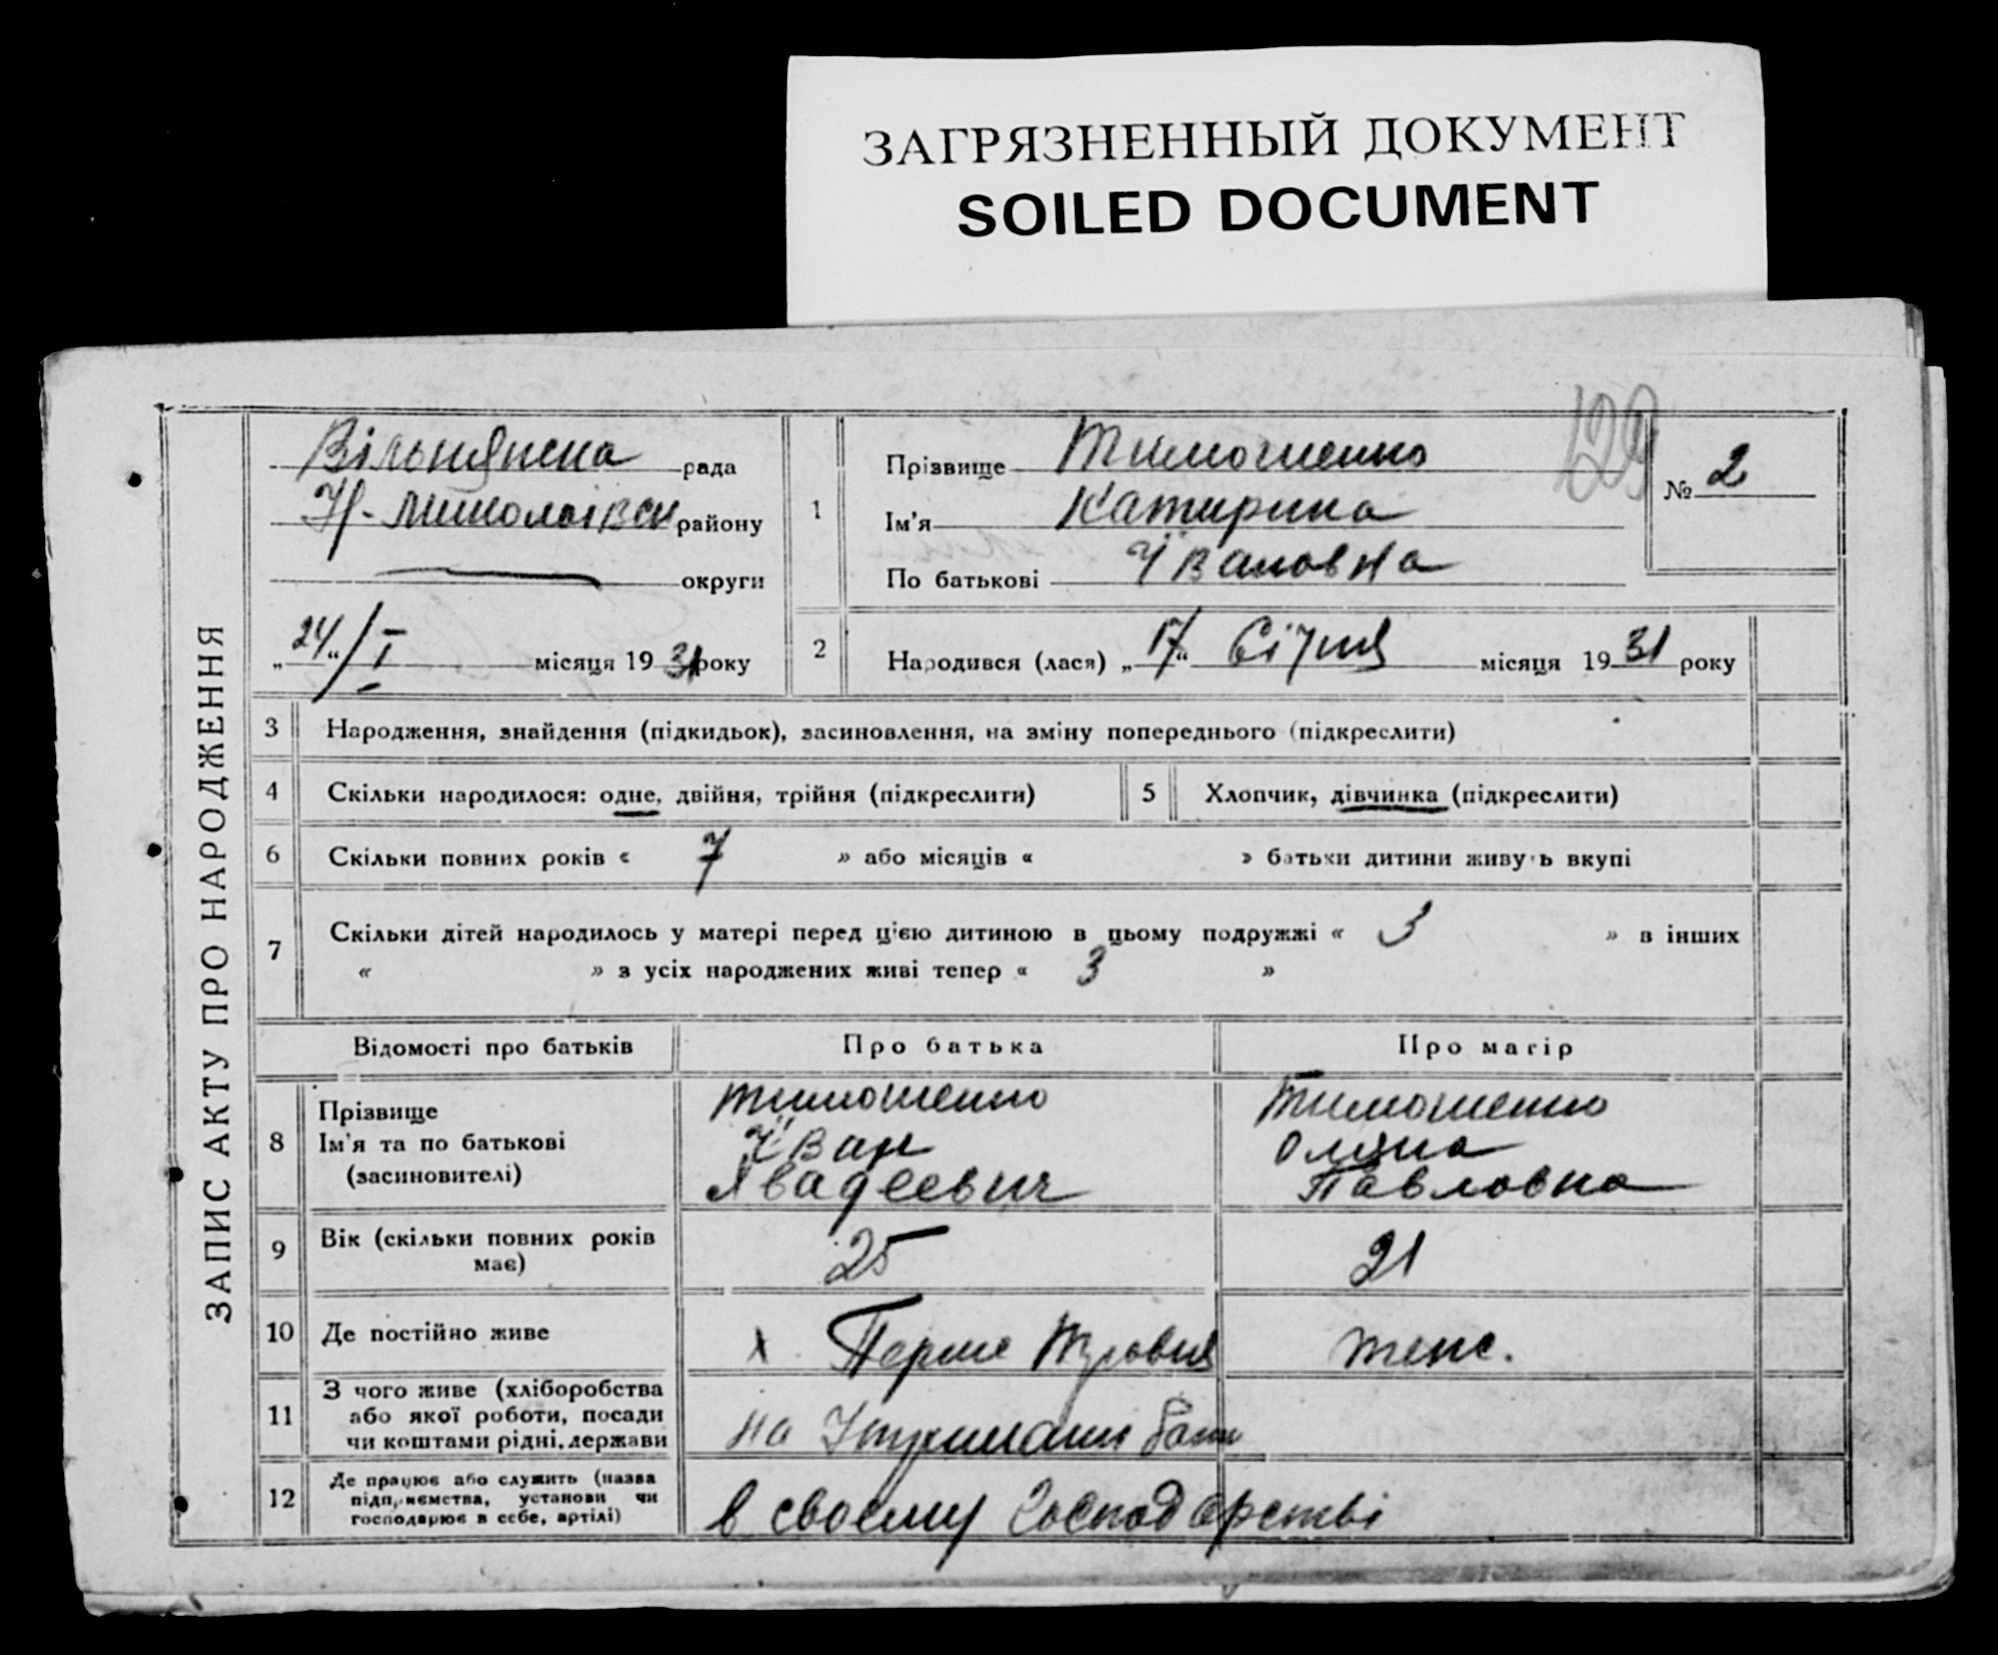 ЗАГРЯЗНЕННЫЙ ДОКУМЕНТ
SOILED DOCUMENT
129
ЗАПИС АКТУ ПРО НАРОДЖЕННЯ
Вільнянська рада
Н-Миколаівск району
округи
„24“/I місяця 1931 року
1
Прізвище Тимошенко
Ім'я Катирина
По батькові Івановна
№ 2
2
Народився (лася) „17“ Січня місяця 1931 року
3 Народження, знайдення (підкидьок), засиновлення, на зміну попереднього (підкреслити)
4 Скільки народилося: одне, двійня, трійня (підкреслити)
5 Хлопчик, дівчинка (підкреслити)
6 Скільки повних років « 7 » або місяців « » батьки дитини живуть вкупі
7 Скільки дітей народилось у матері перед цією дитиною в цьому подружжі « 3 » в інших
« » з усіх народжених живі тепер « 3 »
Відомості про батьків Про батька Про матір
8 Прізвище
Ім'я та по батькові
(засиновителі)
Тимошенко
Іван
Авадеевич
Тимошенко
Оляна
Павловна
9 Вік (скільки повних років
має)
25
21
10 Де постійно живе
х. Перше
теж.
11 З чого живе (хліборобства
або якої роботи, посади
чи коштами рідні, держави
на Утриманн
12 Де працює або служить (назва
підприємства, установи чи
господарює в себе, артілі)
в своєму господарстві